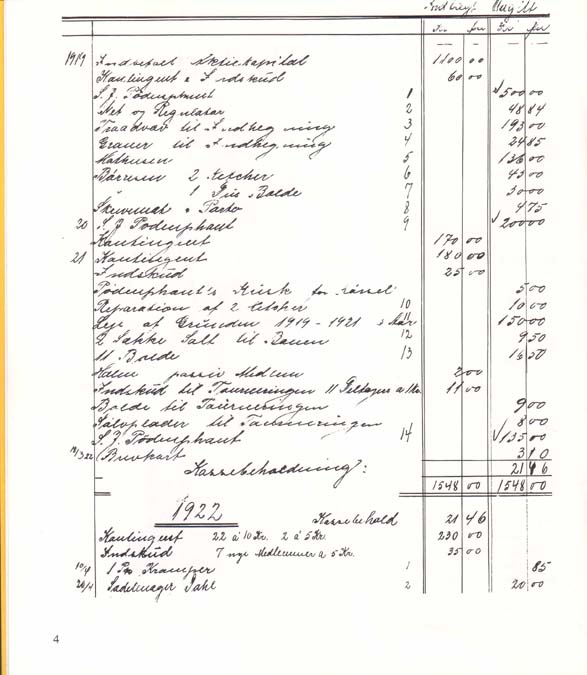 Indtægt Udgift
Kr. Øre Kr. Øre
1919 Indbetalt Aktiekapital 1100 00
Kontingent & Indskud 60 00
S. J. Pödenphant 1 √500 00
Net og Regulator 2 48 84
Traadvæv til Indhegning 3 193 00
Graner til Indhegning 4 24 85
5 136 00
2 Ketcher 6 43 00
" 1 Dus Bolde 7 30 00
& Porto 8 4 75
20 S. J. Pödenphant 9 √200 00
Kontingent 170 00
21 Kontingent 180 00
Indskud 25 00
Pödenphant's Kusk for 5 00
Reparation af 2 Ketcher 10 10 00
Leje af Grunden 1919-1921 3 Aar 11 150 00
2 Sække Salt til Banen 12 9 50
11 Bolde 13 16 50
Holm passiv Medlem 2 00
Indskud til Tourneringen 11 Deltagere a 1 Kr. 11 00
Bolde til Tourneringen 9 00
til Tourneringen 8 00
S. J. Pödenphant 14 √135 00
14/3 22 Brevkort 3 10
Kassebeholdning: 21 46
1548 00 1548 00
1922 Kassebehold 21 46
Kontingent 22 á 10 Kr. 2 á 5 Kr. 230 00
Indskud 7 nye Medlemmer a 5 Kr. 35 00
1 Pk Kramper 1 85
Sadelmager Dahl 2 20 00
4